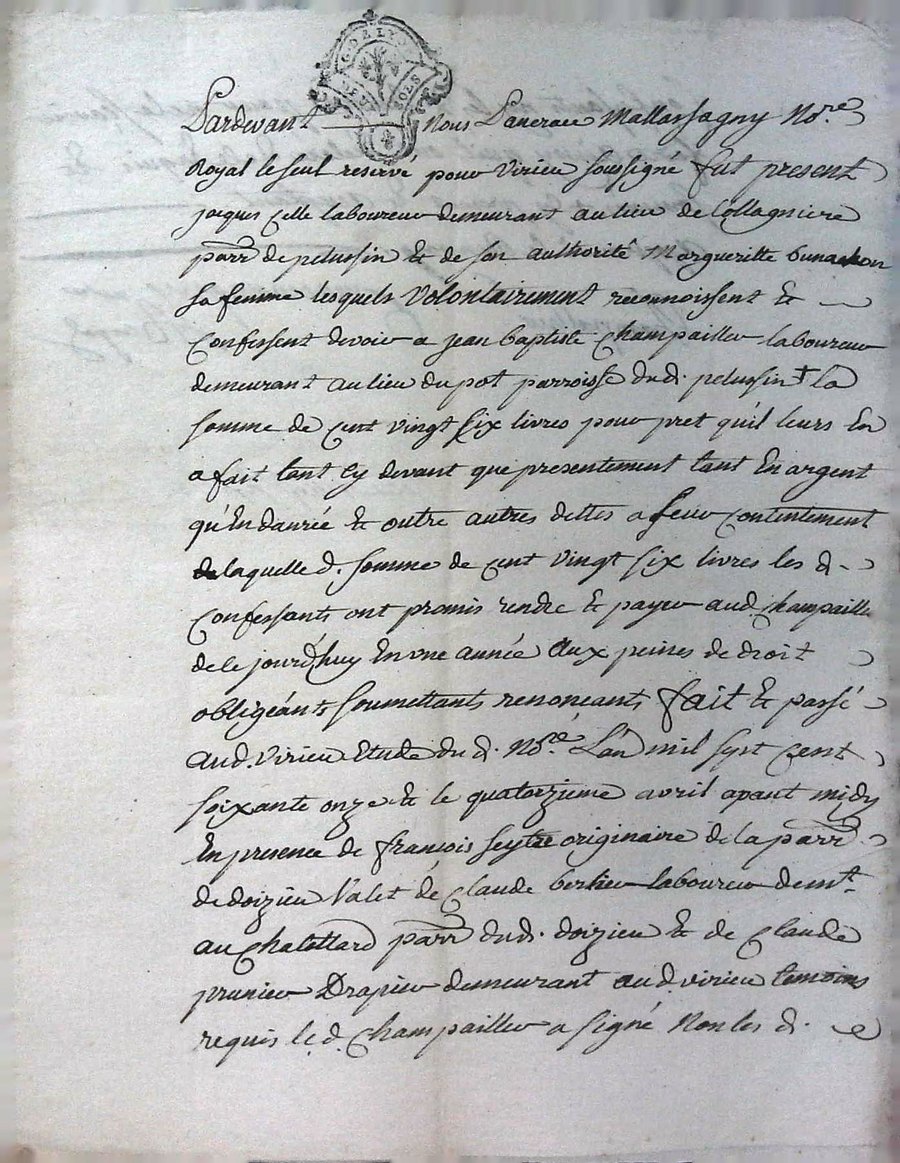 G. DE LYON
DEUX SOLS
Pardevant Nous Pancrace Mallassagny No.re
Royal le seul reservé pour Virieu soussigné fut present
jaques celle laboureur demeurant au lieu de Collagniere
parr de pelussin & de son authorité Margueritte
sa femme lesquels Volontairement reconnoissent &
Confessent devoir a jean baptiste Champailler laboureur
demeurant au lieu du pot parroisse du d. pelussin † la
somme de Cent vingt six livres pour pret qu'il leurs En
a fait tant Cy devant que presentement tant En argent
qu'En danrée & outre autres dettes a leur Contentement
de laquelle d. somme de Cent vingt six livres les d.
Confessants ont promis rendre & payer aud. Champailler
de le jourd'huy En une année Aux peines de droit
obligéants soumettants renonceants fait & passé
aud. virieu Etude du d. No.re L'an mil sept Cent
soixante onze & le quatorzieme avril avant midy
En presence de françois seytre originaire de la parr
de doizieu Valet de Claude berlier laboureur demt.
au Chatellard parr du d. doizieu & de Claude
prunier Drapier demeurant aud. virieu temoins
requis le d. Champailler a signé Non les d.